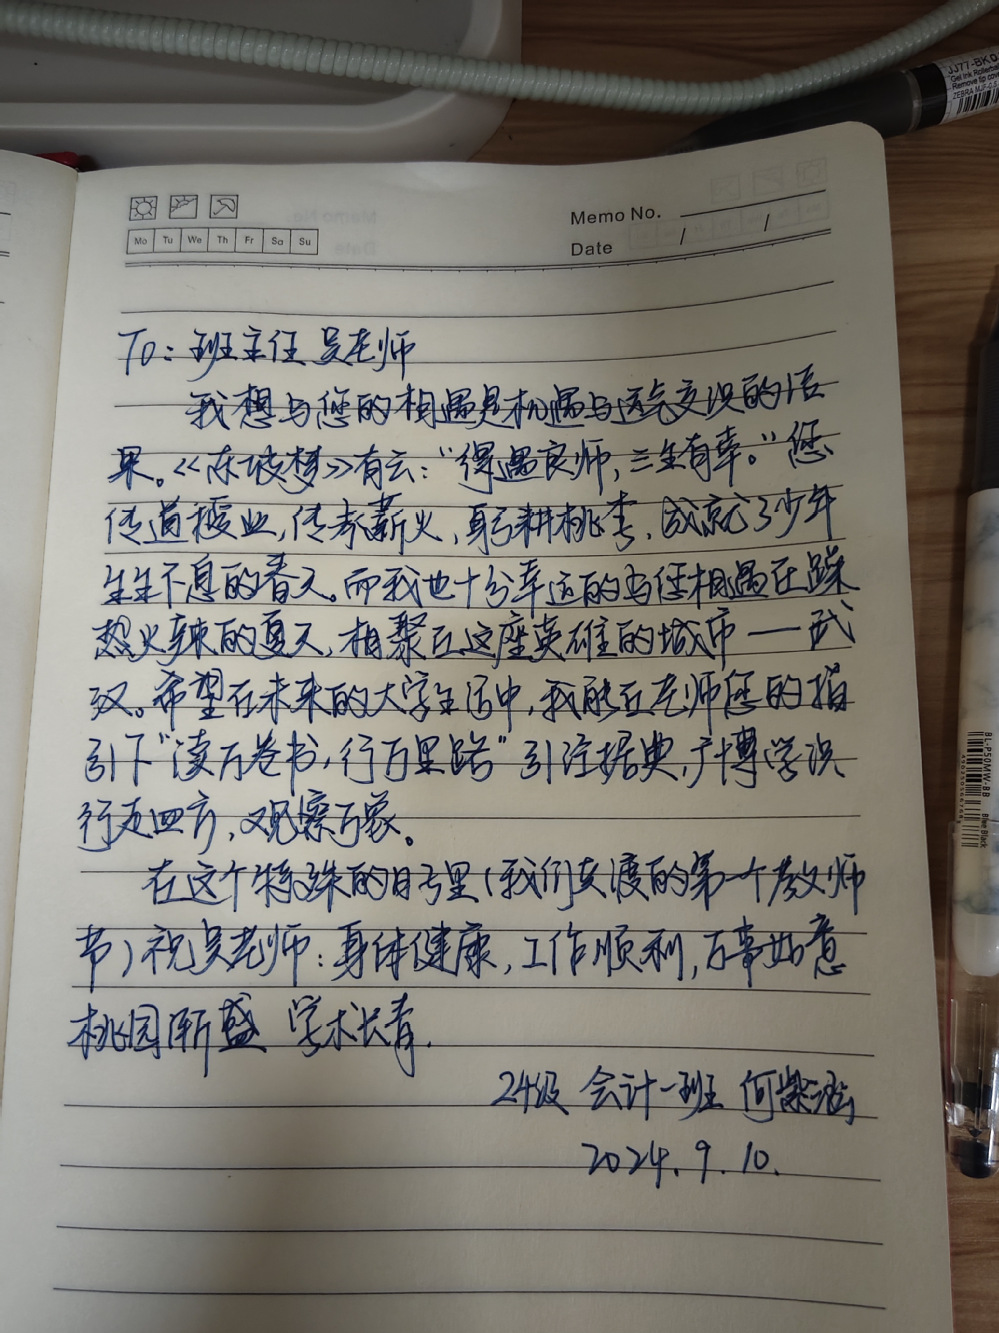 JJ77-BKD
Gel Ink Rollerba
Remove tip cove
ZEBRA MJF-0.5
Memo No.
Mo Tu We Th Fr Sa Su
Date / /
To：班主任 吴老师
我想与您的相遇是机遇与运气交织的结
果。《东坡梦》有云：“得遇良师，三生有幸。”您
传道授业，传承薪火，躬耕桃李，成就了少年
生生不息的春天。而我也十分幸运的与您相遇在
火辣的夏天，相聚在这座英雄的城市——武
汉。希望在未来的大学生活中，我能在老师您的指
引下“读万卷书，行万里路”引注据典，广博学识
行走四方，观察万象。
在这个特殊的日子里（我们共渡的第一个教师
节）祝吴老师：身体健康，工作顺利，万事如意
桃园渐盛 学术长青.
24级 会计一班 何紫涵
2024.9.10.
BL-P50MW-BB
4902505667663
Blue Black